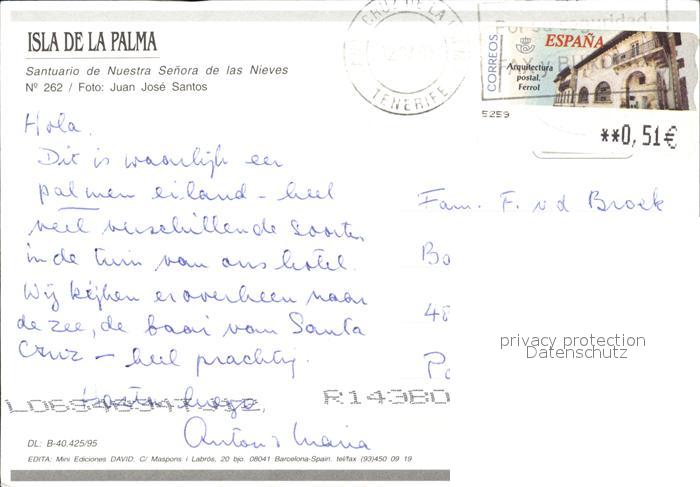 ISLA DE LA PALMA
Santuario de Nuestra Señora de las Nieves
Nº 262 / Foto: Juan José Santos
CRUZ DE LA
TENERIFE
CORREOS
ESPAÑA
Arquitectura
postal.
Ferrol
5259
**0,51€
Hola.
Dit is waarlijk een
palmen eiland - heel
veel verschillende soorten
in de tuin van ons hotel.
Wij kijken er overheen naar
de zee, de baai van Santa
Cruz - heel prachtig.
Hasta luego,
Anton & Maria
Fam. F. vd Broek
Bo
48
privacy protection
Datenschutz
R143BO
DL: B-40.425/95
EDITA: Mini Ediciones DAVID. C/ Maspons i Labrós, 20 bjo. 08041 Barcelona-Spain. tel/fax (93)450 09 19